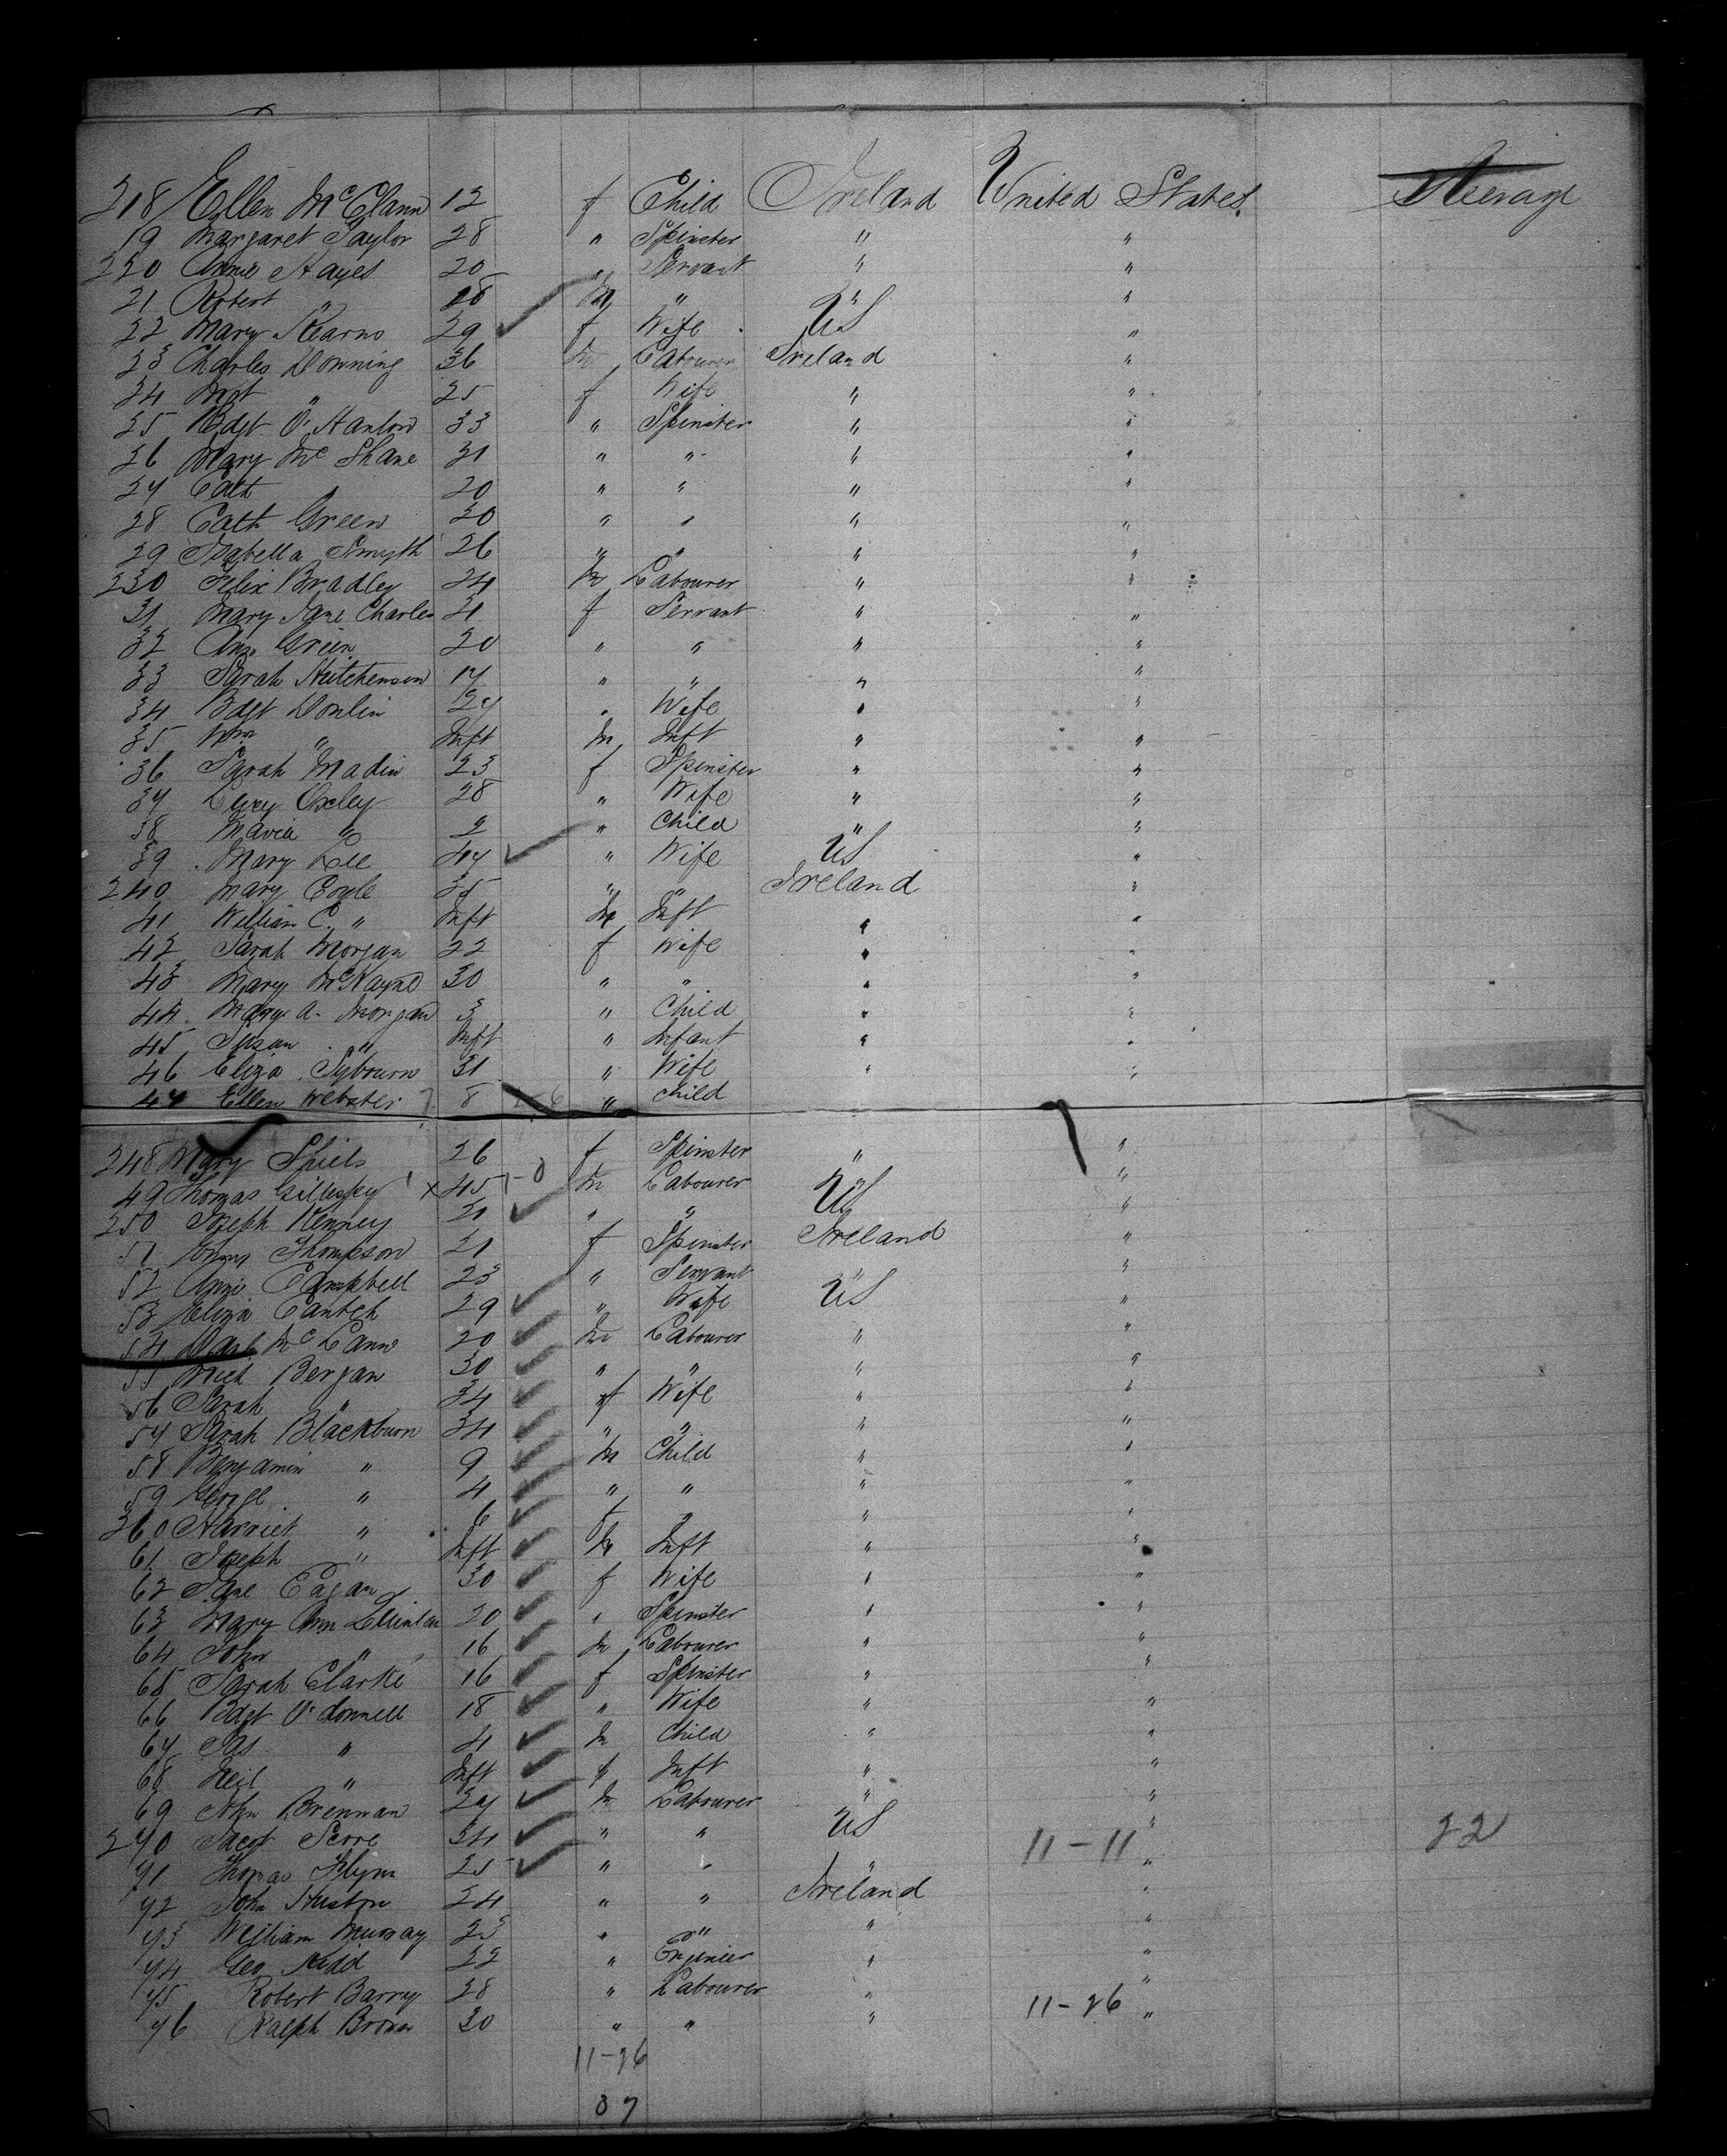 218 Ellen McClann 12 f Child Ireland United States Steerage
19 Margaret Taylor 28 " Spinster " "
220 Annie Hayes 20 " Servant " "
21 Robert " 18 M " " "
22 Mary Kearns 29 f Wife US "
23 Charles Downing 36 M Labourer Ireland "
24 Mgt " 25 f Wife " "
25 Bdgt O'Hanlon 33 " Spinster " "
26 Mary McShane 31 " " " "
27 Cath " 20 " " " "
28 Cath Green 30 " " " "
29 Isabella Smyth 26 " " " "
230 Felix Bradley 24 M Labourer " "
31 Mary Jane Charles 31 f Servant " "
32 Ann Green 20 " " " "
33 Sarah Hutchenson 17 " " " "
34 Bdgt Donlin 27 " Wife " "
35 Wm " Inft M Inft " "
36 Sarah Madin 23 f Spinster " "
37 Lucy Oxley 28 " Wife " "
38 Maria " 2 " Child " "
39 Mary Lee 47 " Wife US "
240 Mary Coyle 35 " " Ireland "
41 William C. " Inft M Inft " "
42 Sarah Morgan 22 f Wife " "
43 Mary McKayne 30 " " " "
44 Mary A. Morgan 3 " Child " "
45 Susan " Inft " Infant " "
46 Eliza Sybourn 31 " Wife " "
47 Ellen Webster 8 " Child
248 Mary Shiels 26 f Spinster " "
49 Thomas Gillespy x 45 M Labourer " "
250 Joseph Kenney 21 " " US "
51 Thompson 21 f Spinster Ireland "
52 Annie Campbell 23 " Servant " "
53 Eliza Cantch 29 " Wife US "
54 McCann 20 M Labourer " "
55 Mich Bergan 30 " " " "
56 Sarah " 34 f Wife " "
57 Sarah Blackburn 34 " " " "
58 Benjamin " 9 M Child " "
59 George " 4 " " " "
260 Harriet " 6 f " " "
61 Joseph " Inft M Inft " "
62 Jane Eagan 30 f Wife " "
63 Mary Ann 20 " Spinster " "
64 John " 16 M Labourer " "
65 Sarah Clarke 16 f Spinster " "
66 Bdgt O'Donnell 18 " Wife " "
67 Jas " 4 M Child " "
68 Neil " Inft " Inft " "
69 John Brennan 27 M Labourer " "
270 Jacob Serre 34 " " US " 22
71 Thomas Flynn 25 " " " 11-11 "
72 John Huston 24 " " Ireland "
73 William Murray 23 " " " "
74 Geo Kidd 22 " Engenier " "
75 Robert Barry 28 " Labourer " "
76 Ralph Brown 30 " " " 11-26 "
11-26
37